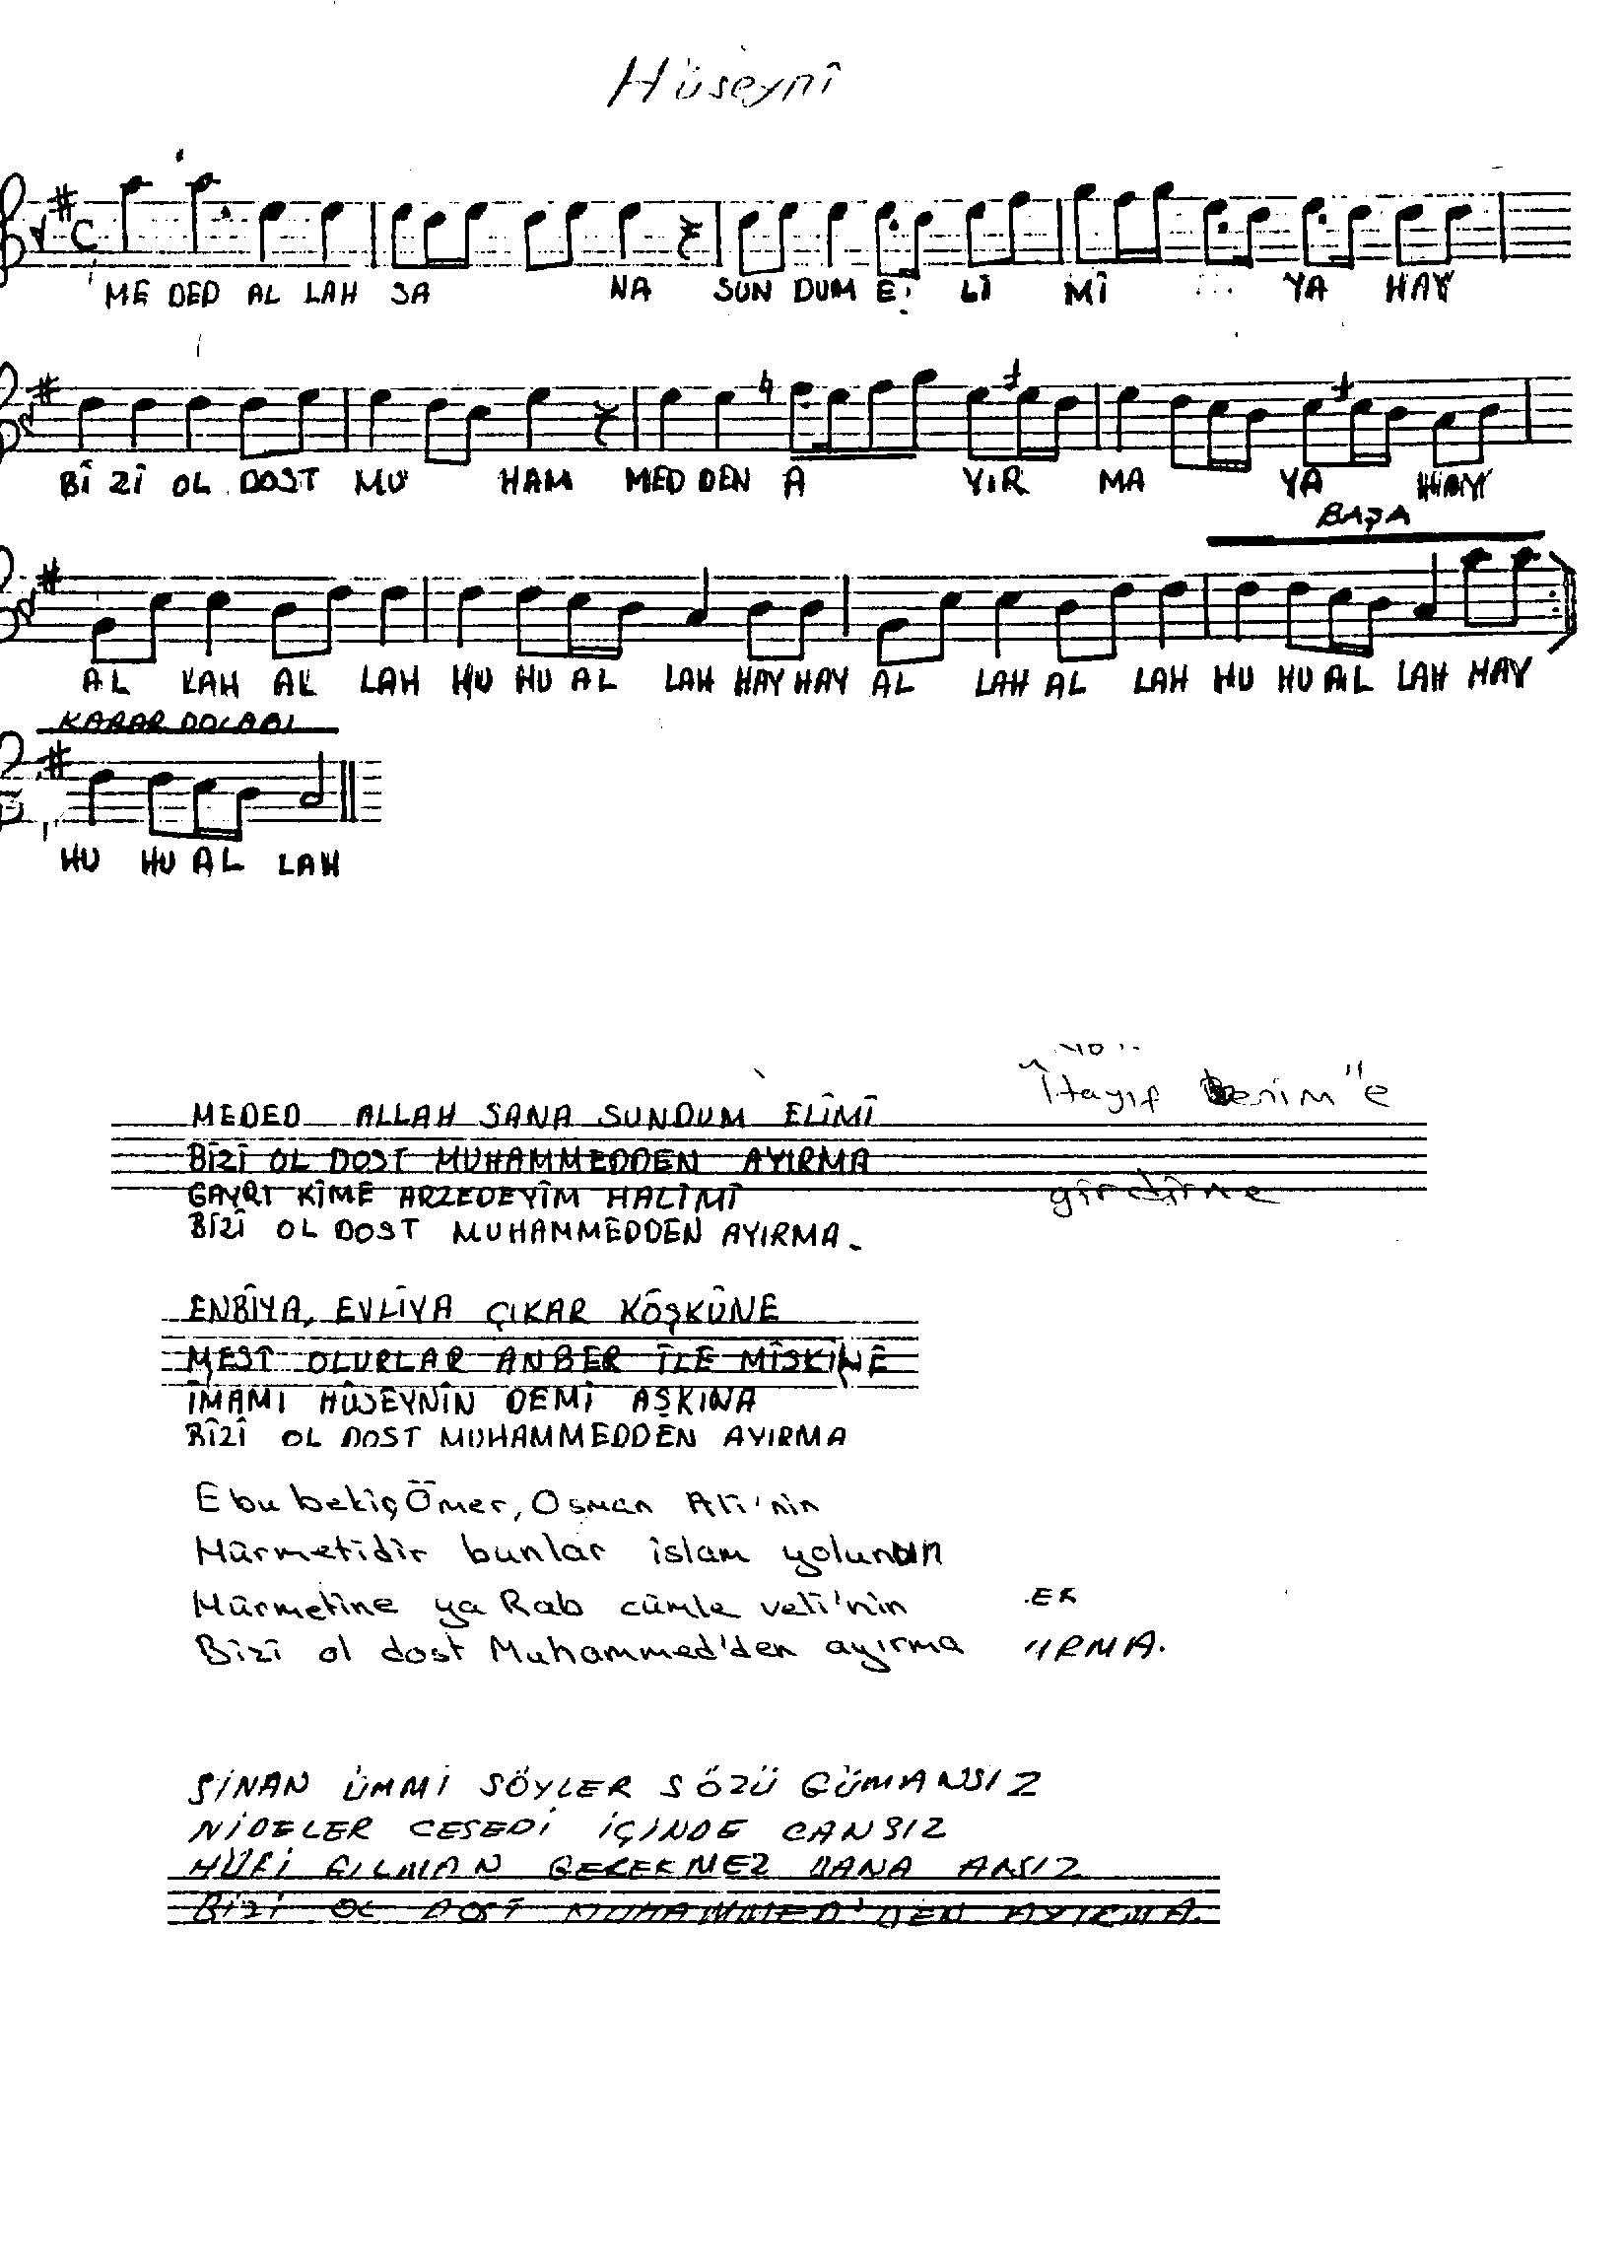 Hüseynî
C
ME DED AL LAH SA NA SUN DUM E LÎ MÎ YA HAY
BÎ ZÎ OL DOST MU HAM MED DEN A YIR MA YA HAY
BAŞA
AL LAH AL LAH HU HU AL LAH HAY HAY AL LAH AL LAH HU HU AL LAH HAY
KARAR DOLABI
HU HU AL LAH
Hayıf benim"e
MEDED ALLAH SANA SUNDUM ELÎMÎ
BÎZÎ OL DOST MUHAMMEDDEN AYIRMA
GAYRI KÎME ARZEDEYÎM HALÎMÎ girdirme
BÎZÎ OL DOST MUHAMMEDDEN AYIRMA
ENBÎYA, EVLÎYA ÇIKAR KÖŞKÜNE
MEST OLURLAR ANBER ÎLE MÎSKÎNE
ÎMAMI HÜSEYNÎN DEMÎ AŞKINA
BÎZÎ OL DOST MUHAMMEDDEN AYIRMA
Ebubekir, Ömer, Osman Ali'nin
Hürmetidir bunlar islam yolunun
Hürmetine ya Rab cümle veli'nin ER
Bizi ol dost Muhammed'den ayırma IRMA.
SİNAN ÜMMİ SÖYLER SÖZÜ GÜMANSIZ
NİDELER CESEDİ İÇİNDE CANSIZ
HÛRİ GILMAN GEREKMEZ BANA ANSIZ
BİZİ OL DOST MUHAMMED'DEN AYIRMA.